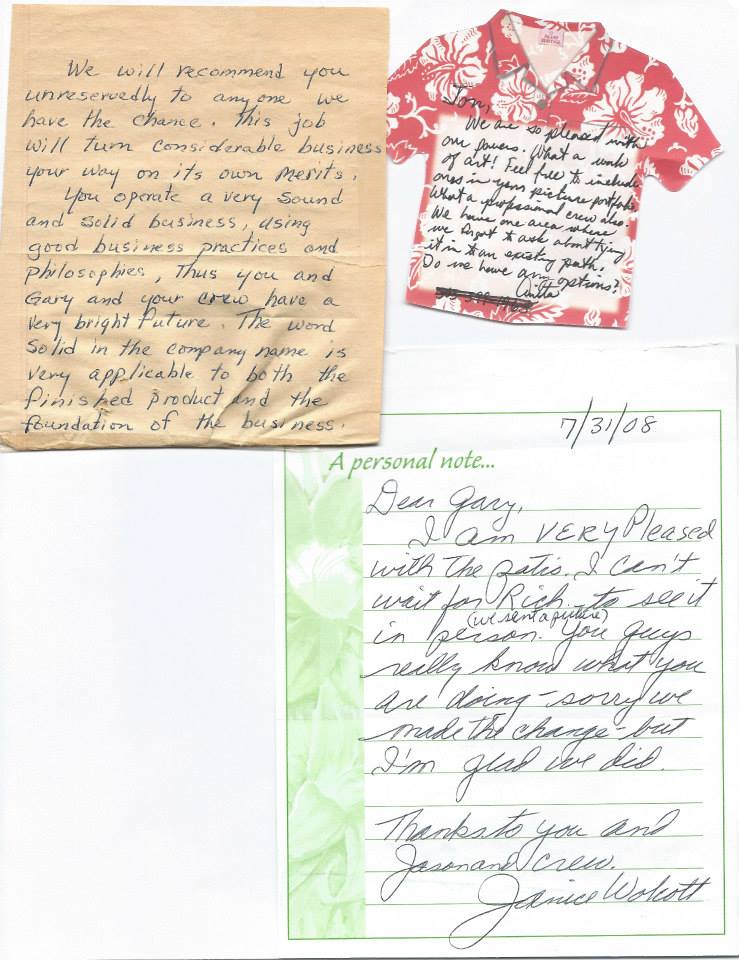 We will recommend you
unreservedly to anyone we
have the chance. This job
will turn considerable business
your way on its own merits.
You operate a very sound
and solid business, using
good business practices and
philosophies, Thus you and
Gary and your crew have a
very bright future. The word
Solid in the company name is
very applicable to both the
finished product and the
foundation of the business.
Tom,
We are so pleased with
our pavers. What a work
of art! Feel free to include
ones in your picture portfolio.
What a professional crew also.
We have one area where
we forgot to ask about tying
it in to an existing path.
Do we have any options?
Anita
7/31/08
A personal note...
Dear Gary,
I am VERY Pleased
with the patio. I can't
wait for Rich to see it
(we sent a picture)
in person. You guys
really know what you
are doing - sorry we
made the change - but
I'm glad we did.
Thanks to you and
Jason and crew.
Janice Wolcott